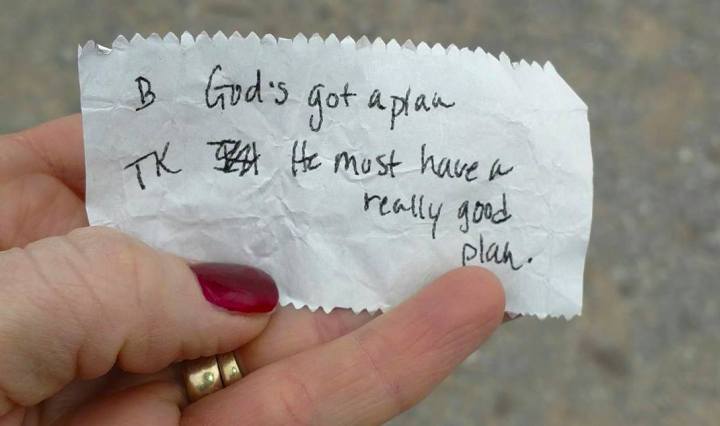 B God's got a plan
TK He must have a
really good
plan.